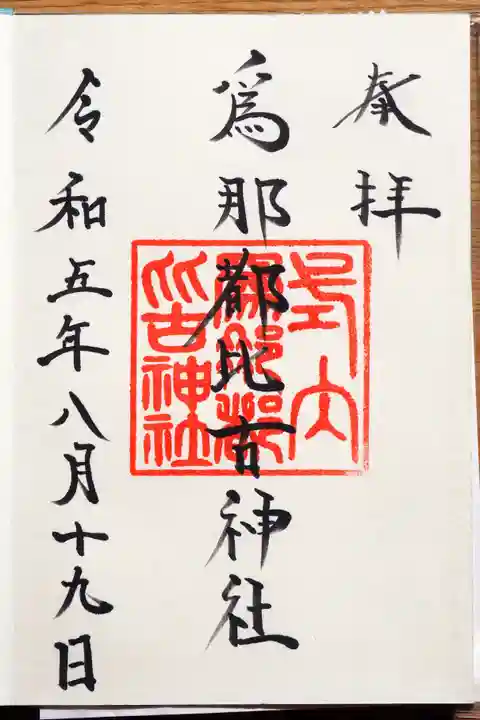 奉拜
爲那都比古神社
令和五年八月十九日
式内
爲那都
比古神社